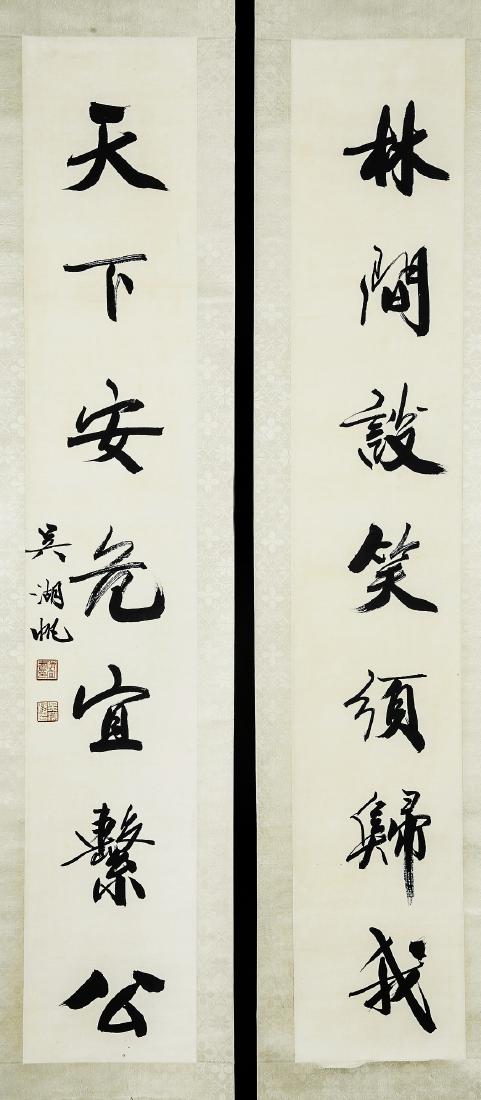 林間談笑須歸我
天下安危宜繫公
吳湖帆